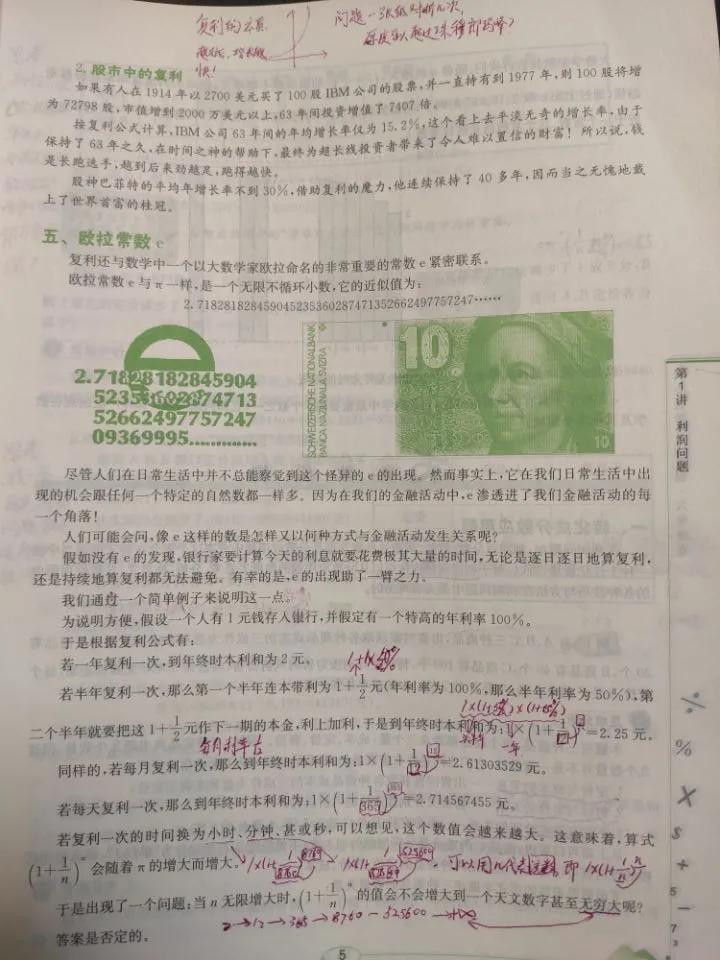 复利的本质
问题一张纸对折几次,
厚度会超过珠穆朗玛峰?
快!
2. 股市中的复利
如果有人在 1914 年以 2700 美元买了 100 股 IBM 公司的股票,并一直持有到 1977 年,则 100 股将增
为 72798 股,市值增到 2000 万美元以上,63 年间投资增值了 7407 倍。
按复利公式计算,IBM 公司 63 年间的年均增长率仅为 15.2%,这个看上去平淡无奇的增长率,由于
保持了 63 年之久,在时间之神的帮助下,最终为超长线投资者带来了令人难以置信的财富! 所以说,钱
是长跑选手,越到后来劲越足,跑得越快。
股神巴菲特的平均年增长率不到 30%,借助复利的魔力,他连续保持了 40 多年,因而当之无愧地戴
上了世界首富的桂冠。
五、欧拉常数 e
复利还与数学中一个以大数学家欧拉命名的非常重要的常数 e 紧密联系。
欧拉常数 e 与 π 一样,是一个无限不循环小数,它的近似值为:
2.71828182845904523536028747135266249775724​7……
2.7182818284​5904
52353602874713
52662497757247
09369995............
SCHWEIZERISCHE NATIONALBANK
BANCA NAZIUNALA SVIZRA
10
10
第1讲 利润问题
尽管人们在日常生活中并不总能察觉到这个怪异的 e 的出现。然而事实上,它在我们日常生活中出
现的机会跟任何一个特定的自然数都一样多。因为在我们的金融活动中,e 渗透进了我们金融活动的每
一个角落!
人们可能会问,像 e 这样的数是怎样又以何种方式与金融活动发生关系呢?
假如没有 e 的发现,银行家要计算今天的利息就要花费极其大量的时间,无论是逐日逐日地算复利,
还是持续地算复利都无法避免。有幸的是,e 的出现助了一臂之力。
我们通过一个简单例子来说明这一点。
为说明方便,假设一个人有 1 元钱存入银行,并假定有一个特高的年利率 100%。
于是根据复利公式有:
若一年复利一次,到年终时本利和为 2 元。
若半年复利一次,那么第一个半年连本带利为 1+1/2 元(年利率为 100%,那么半年利率为 50%),第
1×(1+50%)×(1+50%)
二个半年就要把这 1+1/2 元作下一期的本金,利上加利,于是到年终时本利和为:1×(1+1/2)²=2.25 元。
每月利率
半年
一年
同样的,若每月复利一次,那么到年终时本利和为:1×(1+1/12)¹²=2.61303529 元。
若每天复利一次,那么到年终时本利和为:1×(1+1/365)³⁶⁵=2.714567455 元。
若复利一次的时间换为小时、分钟、甚或秒,可以想见,这个数值会越来越大。这意味着,算式
(1+1/n)ⁿ 会随着 n 的增大而增大。
1×(1+1/8760)⁸⁷⁶⁰ 1×(1+1/525600)⁵²⁵⁶⁰⁰ 可以用n代表这数,即 1×(1+1/n)ⁿ
于是出现了一个问题:当 n 无限增大时,(1+1/n)ⁿ 的值会不会增大到一个天文数字甚至无穷大呢?
2→12→365→8760→525600→+∞
答案是否定的。
5